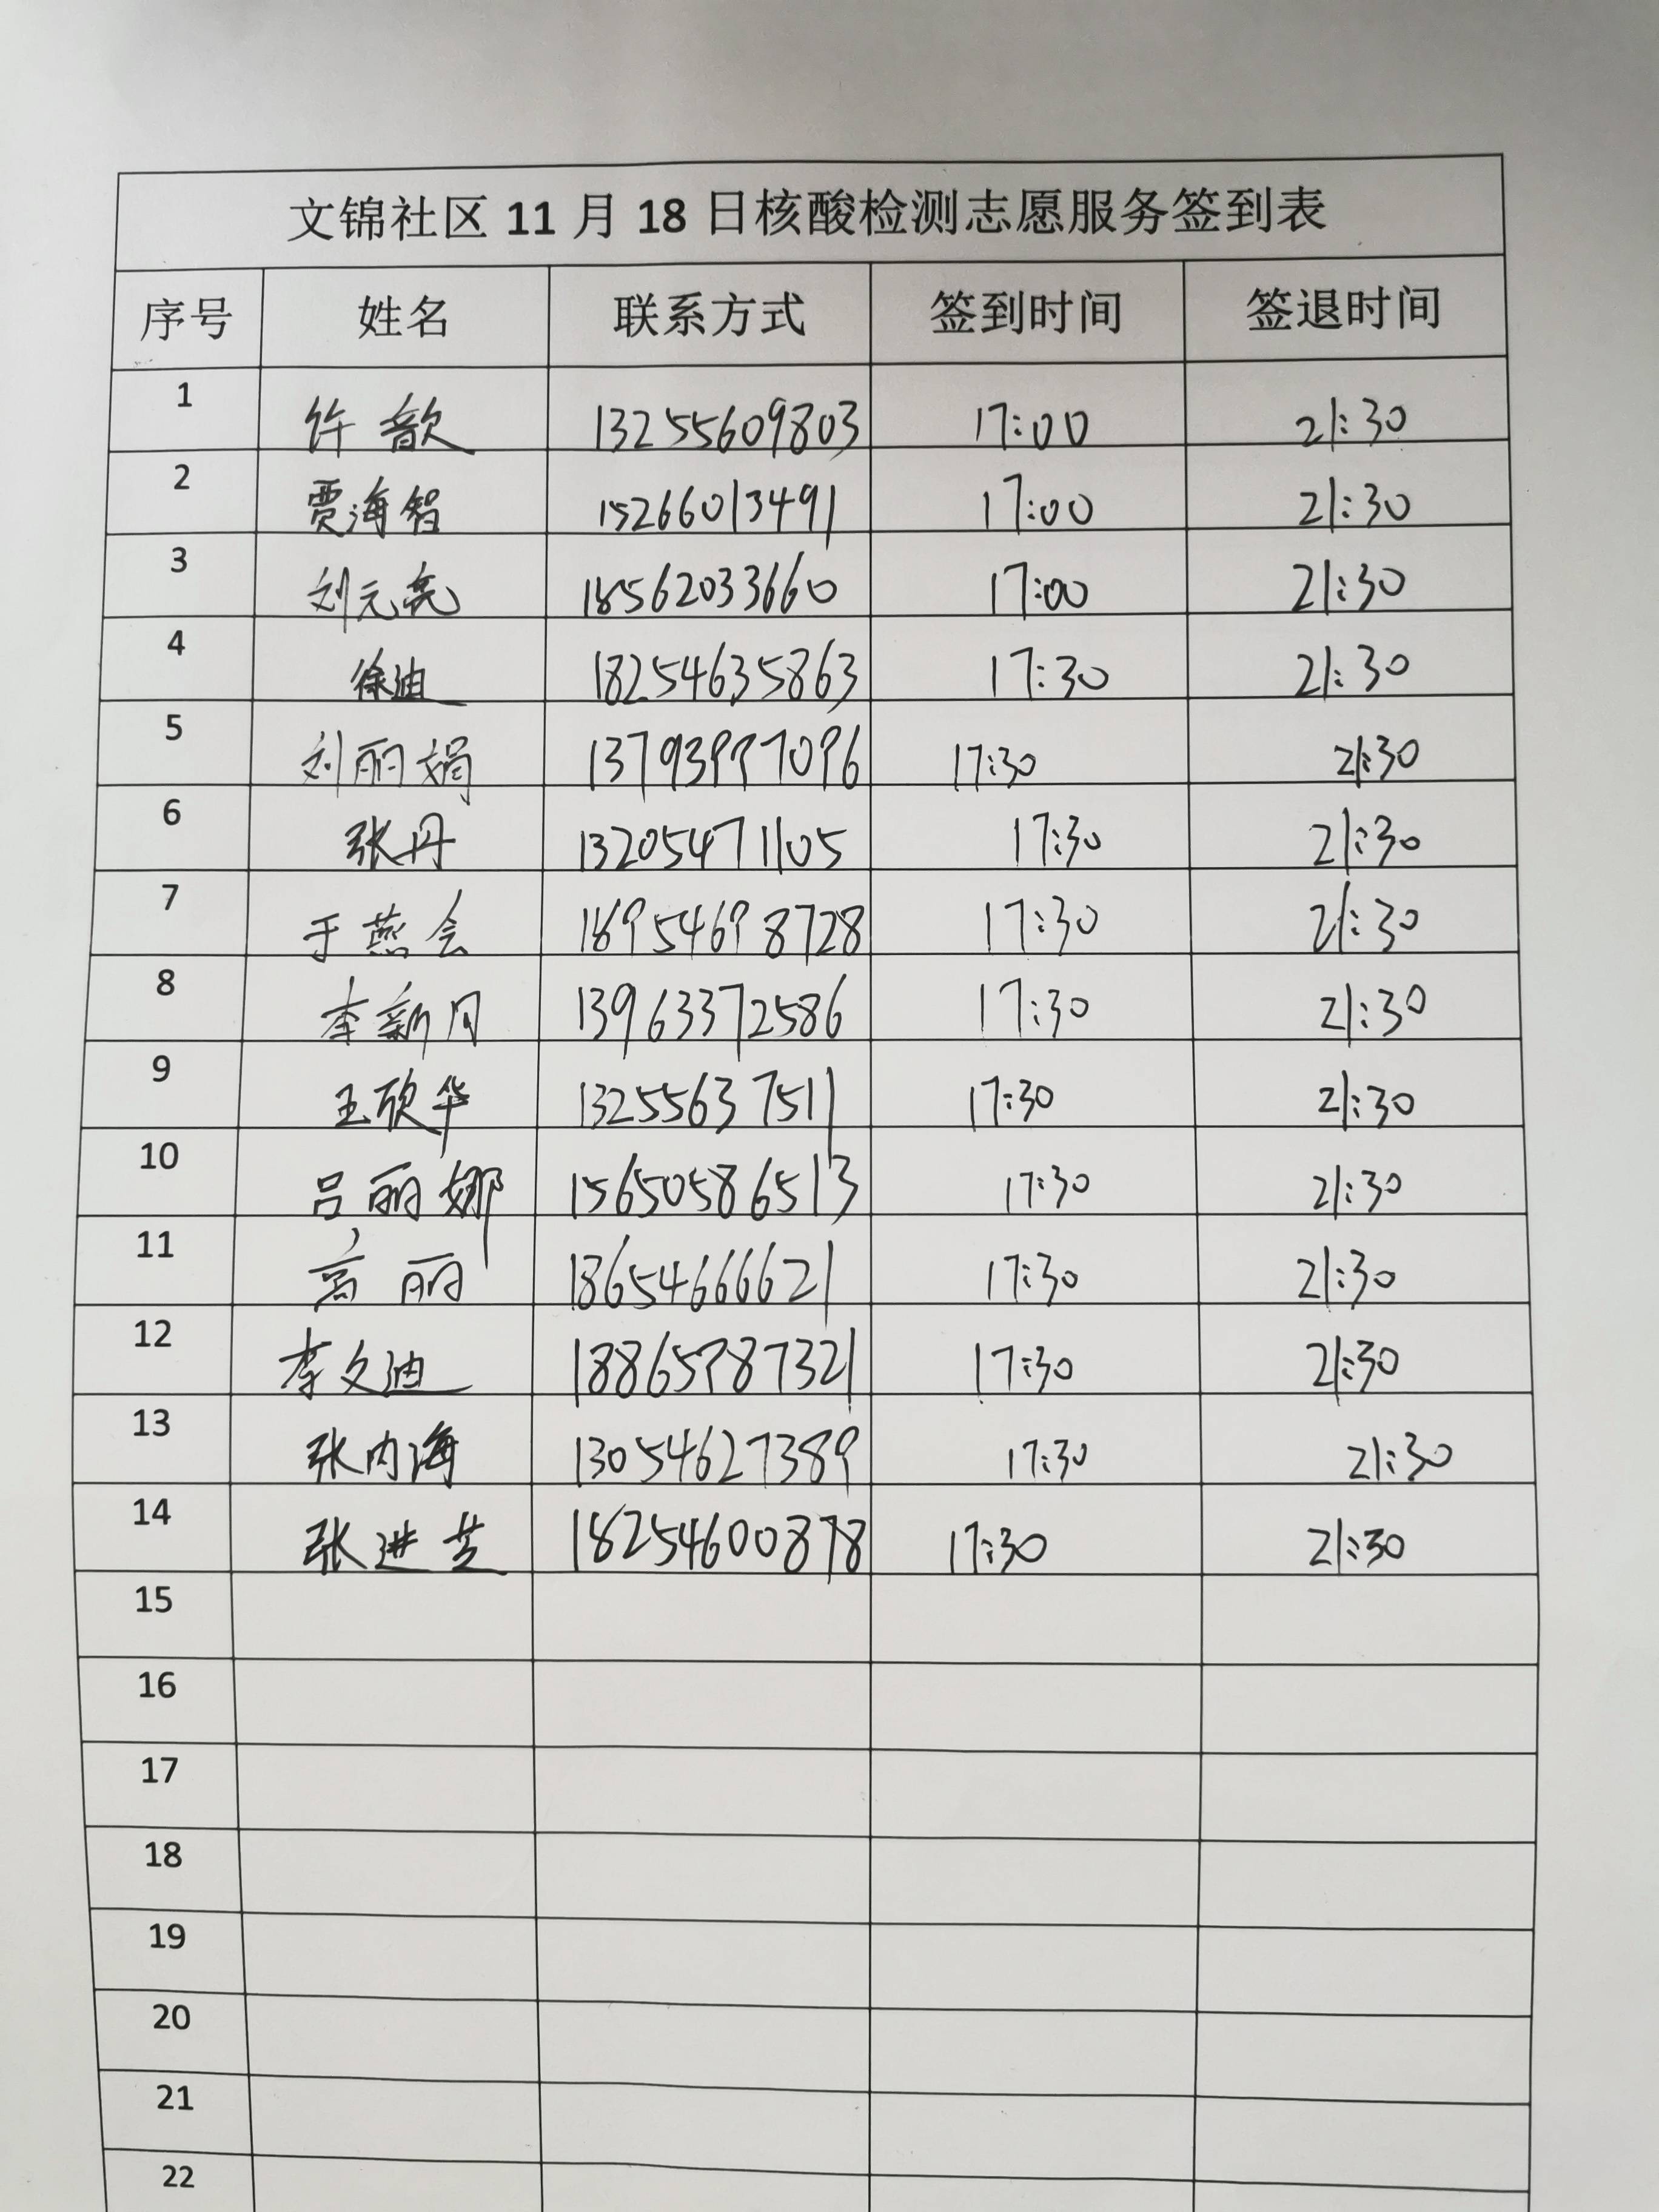 文锦社区 11 月 18 日核酸检测志愿服务签到表
序号 姓名 联系方式 签到时间 签退时间
1 许歆 13255609803 17:00 21:30
2 贾海智 15266013491 17:00 21:30
3 刘元亮 18562033660 17:00 21:30
4 徐迪 18254635863 17:30 21:30
5 刘丽娟 13793997096 17:30 21:30
6 张丹 13205471105 17:30 21:30
7 于燕会 18954698728 17:30 21:30
8 李新月 13963372586 17:30 21:30
9 王欣华 13255637511 17:30 21:30
10 吕丽娜 15650586513 17:30 21:30
11 高丽 18654666621 17:30 21:30
12 李文迪 18865787321 17:30 21:30
13 张内海 13054627389 17:30 21:30
14 张进芝 18254600878 17:30 21:30
15
16
17
18
19
20
21
22